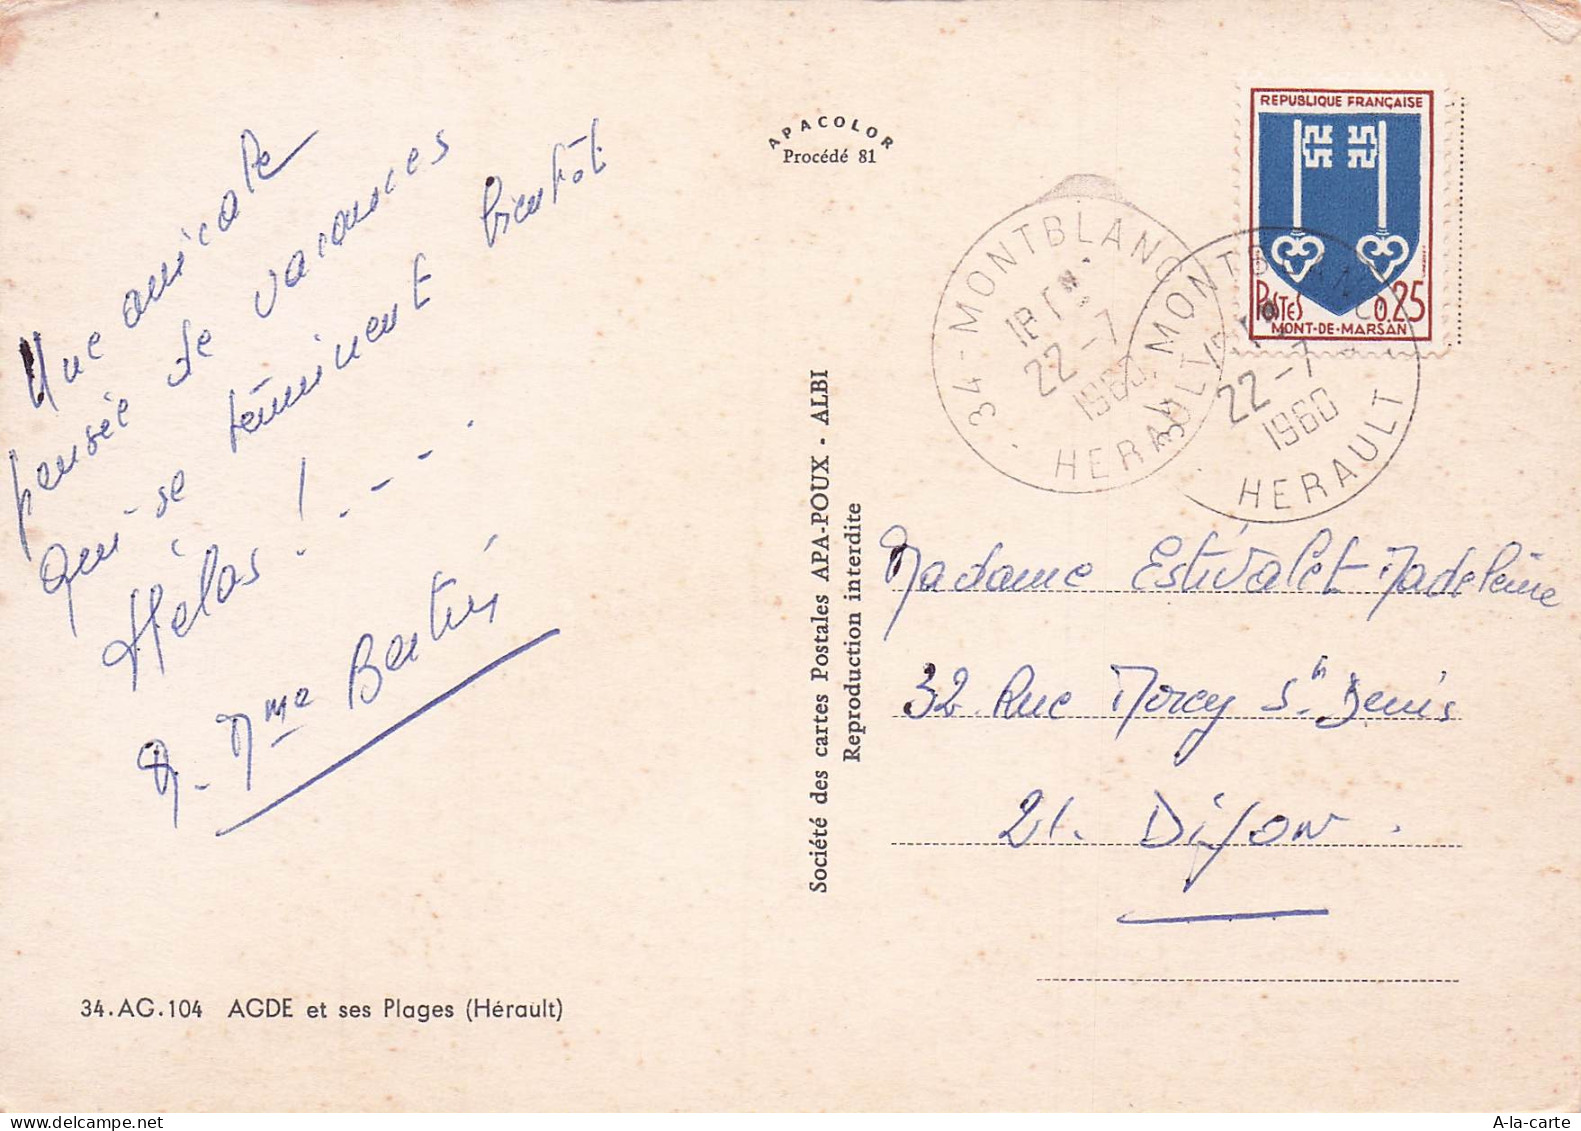 Une amicale
pensée de vacances
qui se terminent bientôt
Hélas ! - - .
Mme
APACOLOR
Procédé 81
Société des cartes Postales APA-POUX - ALBI
Reproduction interdite
REPUBLIQUE FRANÇAISE
POSTES 0,25
MONT-DE-MARSAN
34 - MONTBLANC
22 - 7
1960
HERAULT
34 MONTBLANC
22 - 7
1960
HERAULT
Madame Estivalet Madeleine
32 Rue Morcy St Denis
21. Dijon.
34.AG.104 AGDE et ses Plages (Hérault)
A-la-carte